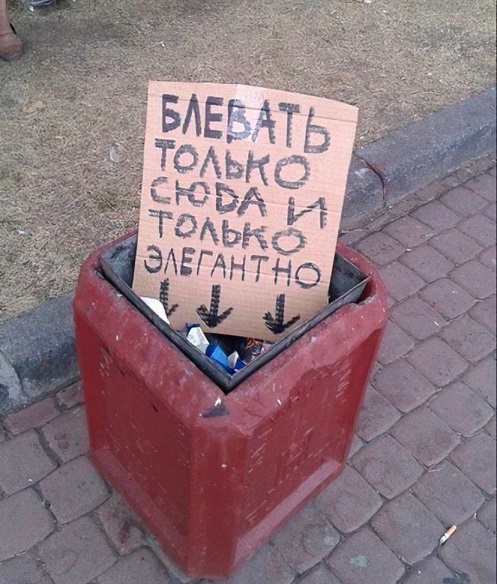 БЛЕВАТЬ
ТОЛЬКО
СЮДА И
ТОЛЬКО
ЭЛЕГАНТНО